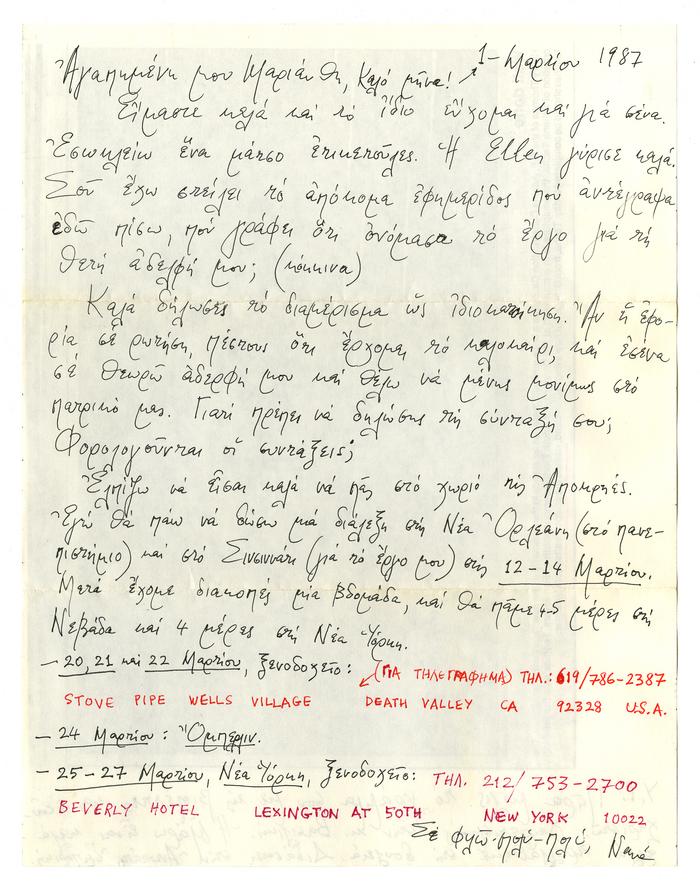 1- Μαρτίου 1987
Ἀγαπημένη μου Μαριάνθη, Καλό μῆνα!
Εἴμαστε καλά καί τό ἴδιο εὔχομαι καί γιά σένα.
Ἐσωκλείω ἕνα μάτσο ἐτικετοῦλες. Ἡ Ellen γύρισε καλά.
Σοῦ ἔχω στείλει τό ἀπόκομα ἐφημερίδος πού ἀντέγραψα
ἐδῶ πίσω, πού γράφει ὅτι ὀνόμασα τό ἔργο γιά τή
θετή ἀδελφή μου; (κόκκινα)
Καλά δήλωσες τό διαμέρισμα ὡς ἰδιοκατοίκηση. Ἄν ἡ ἐφο-
ρία σέ ρωτήση, πέστους ὅτι ἔρχομαι τό καλοκαίρι, καί ἐσένα
σέ θεωρῶ ἀδερφή μου καί θέλω νά μένης μονίμως στό
πατρικό μας. Γιατί πρέπει νά δηλώσης τή σύνταξή σου;
Φορολογοῦνται οἱ συντάξεις;
Ἐλπίζω νά εἶσαι καλά νά πᾶς στό χωριό τίς Ἀποκρηές.
Ἐγώ θά πάω νά δώσω μιά διάλεξη στή Νέα Ὀρλεάνη (στό πανε-
πιστήμιο) καί στό Σινσιννάτι (γιά τό ἔργο μου) στίς 12-14 Μαρτίου.
Μετά ἔχομε διακοπές μία βδομάδα, καί θά πᾶμε 4-5 μέρες στή
Νεβάδα καί 4 μέρες στή Νέα Ὑόρκη.
- 20, 21 καί 22 Μαρτίου, ξενοδοχεῖο: (ΓΙΑ ΤΗΛΕΓΡΑΦΗΜΑ) ΤΗΛ.: 619/786-2387
STOVE PIPE WELLS VILLAGE DEATH VALLEY CA 92328 U.S.A.
- 24 Μαρτίου: Ὄμπερλιν.
- 25-27 Μαρτίου, Νέα Ὑόρκη, ξενοδοχεῖο: ΤΗΛ. 212/753-2700
BEVERLY HOTEL LEXINGTON AT 50TH NEW YORK 10022
Σέ φιλῶ-πολύ-πολύ, Νανά